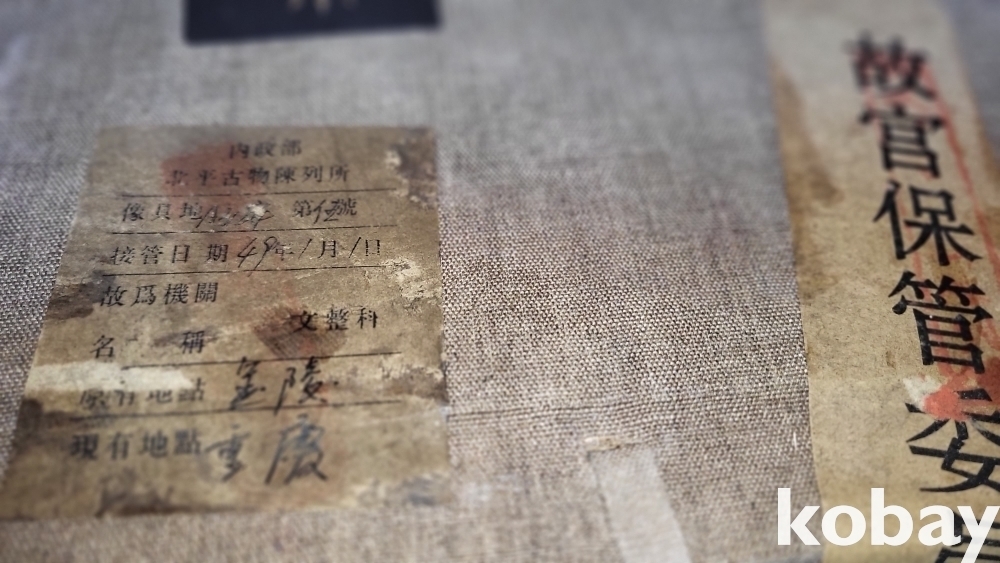 內政部
北平古物陳列所
傢具地 第伍號
接管日期49年1月1日
故爲機關
文整科
名稱
原有地點 金陵
現有地點 重慶
故宮保管委員
kobay